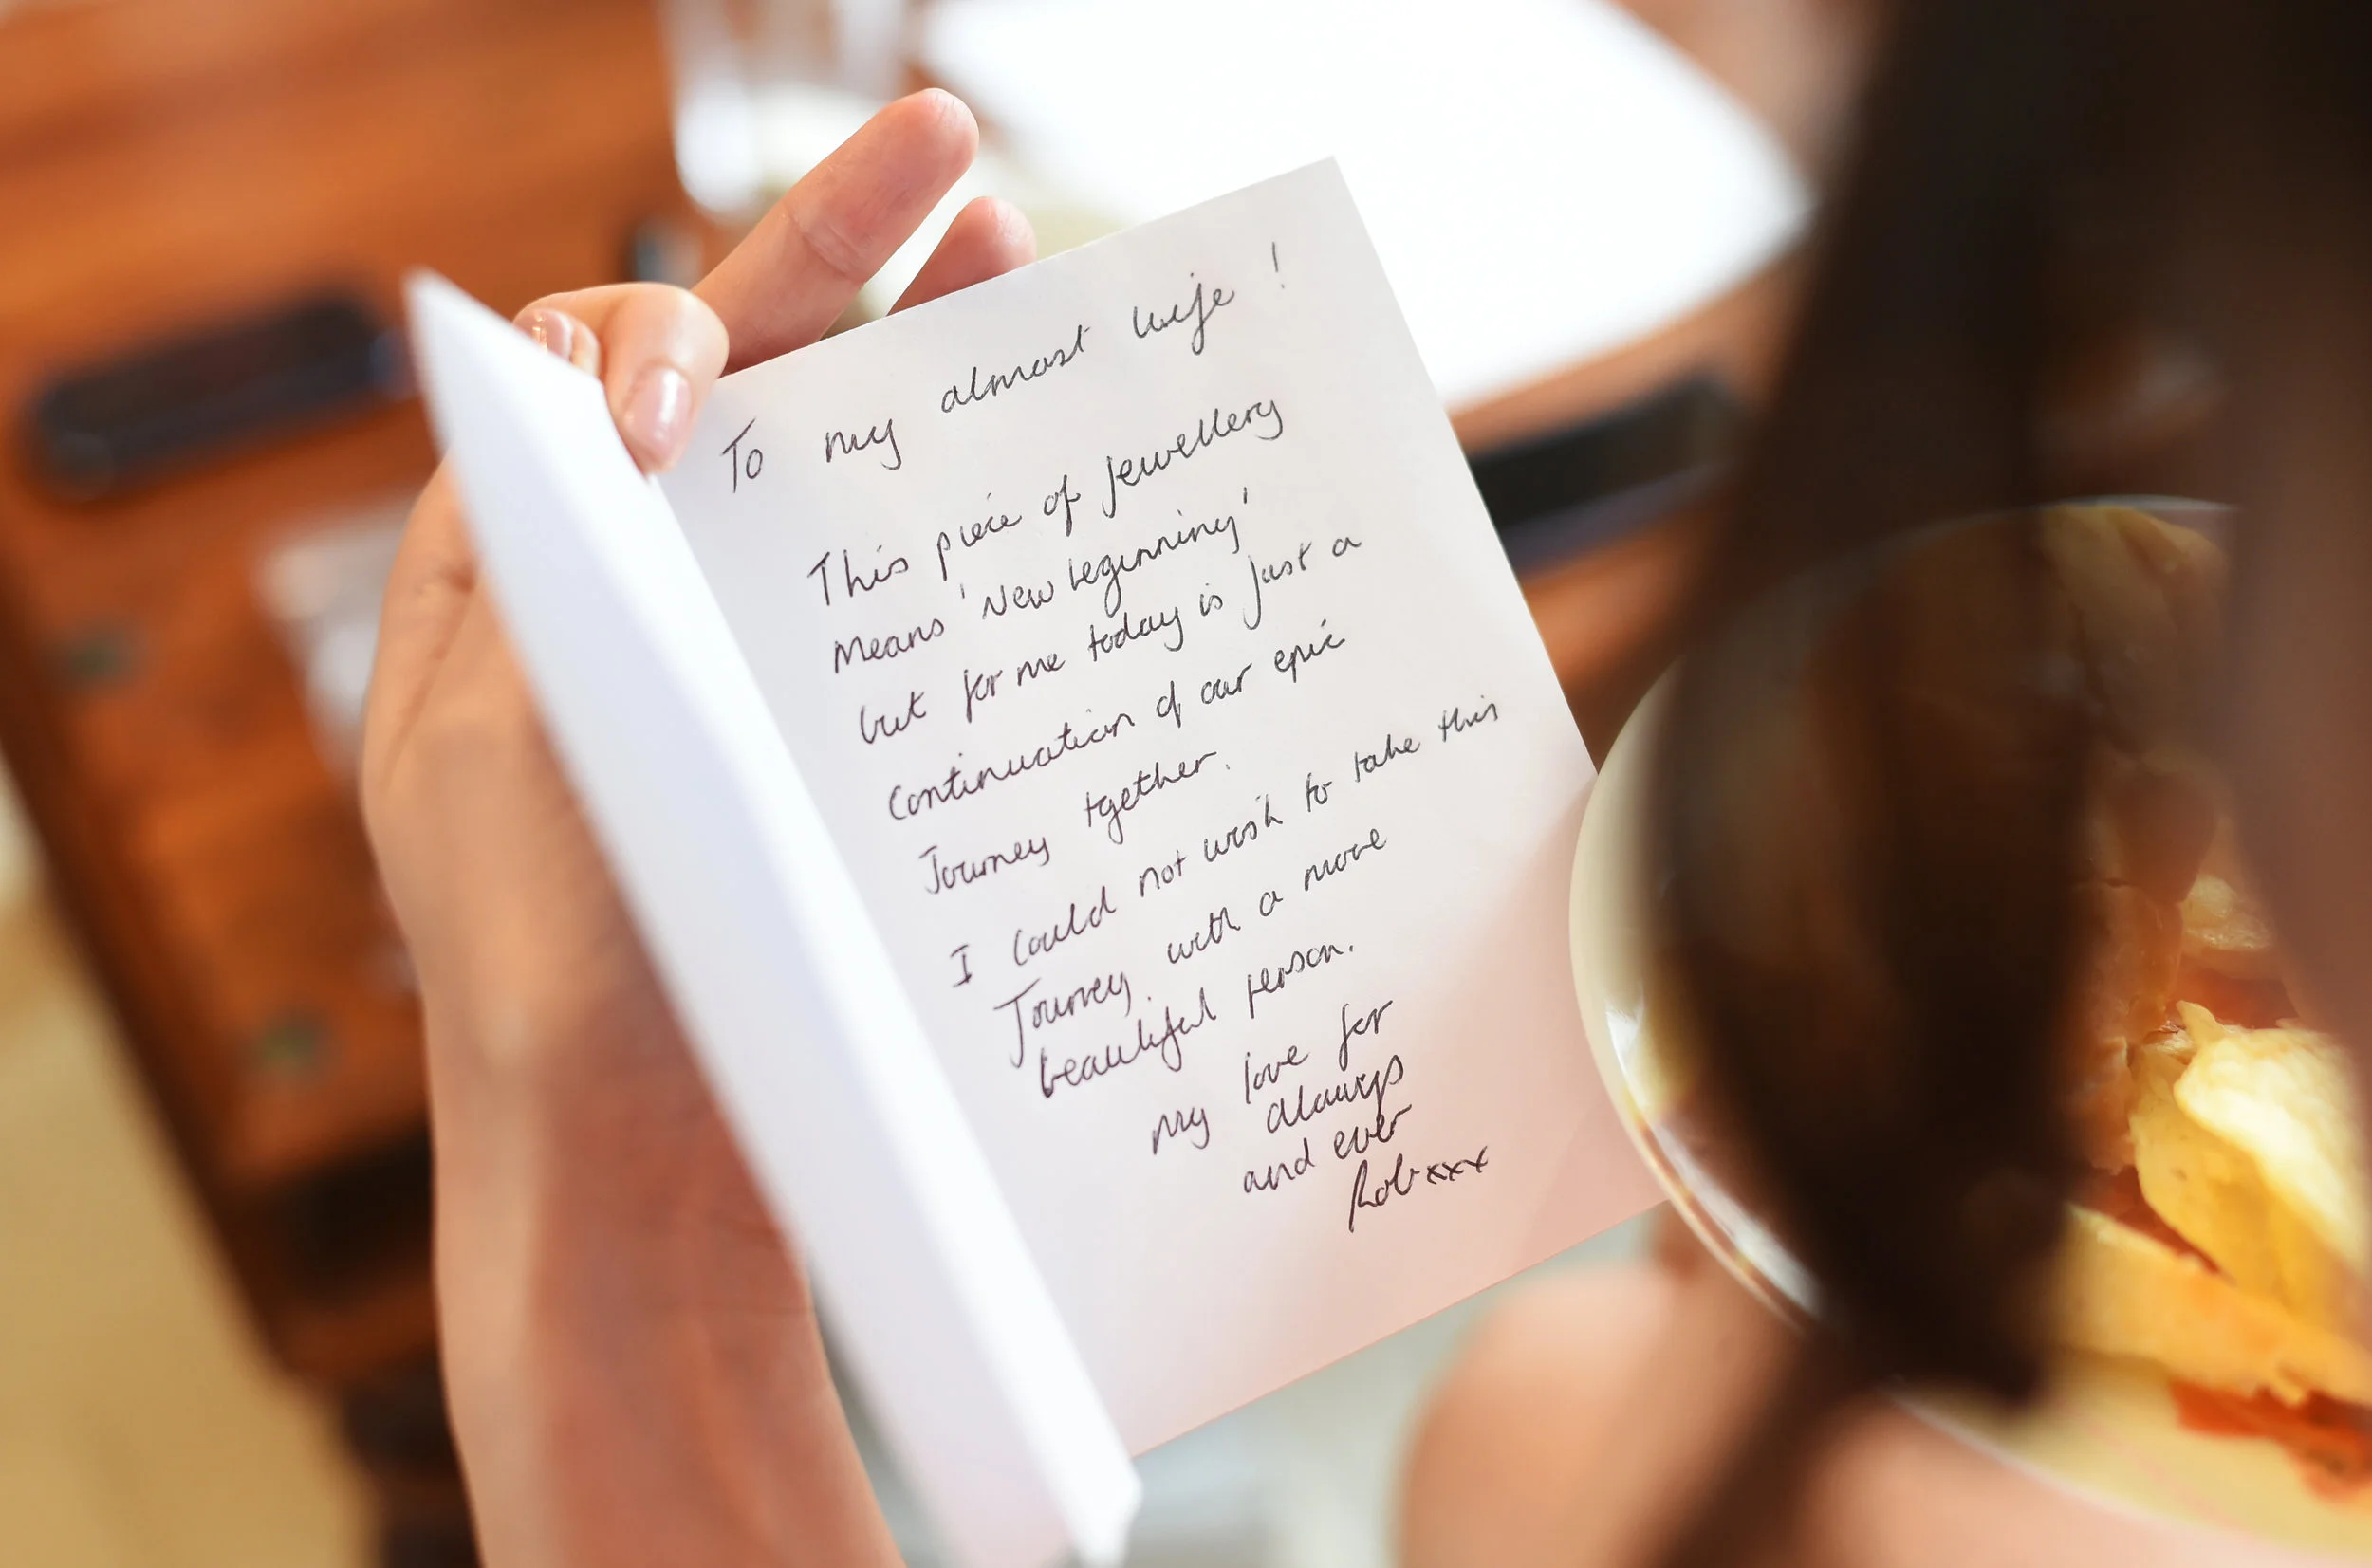 To my almost wife !
This piece of Jewellery
Means 'New beginning'
but for me today is just a
Continuation of our epic
Journey tgether.
I Could not wish to take this
Journey with a more
beautiful person.
my love for
always
and ever
Rob xxx